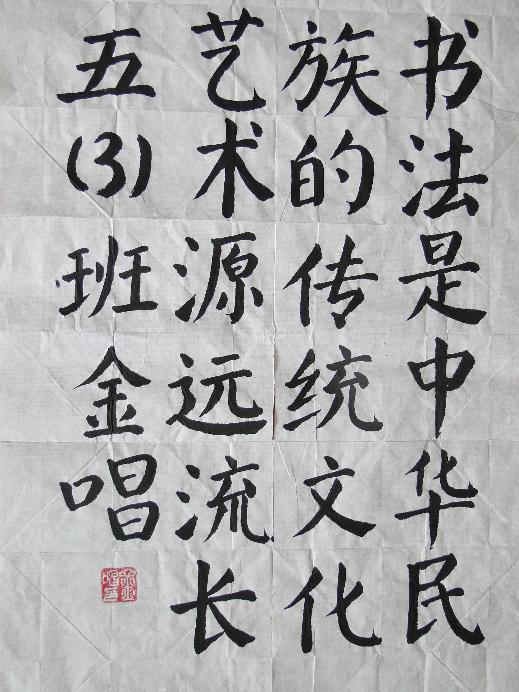 书法是中华民
族的传统文化
艺术源远流长
五(3)班金唱